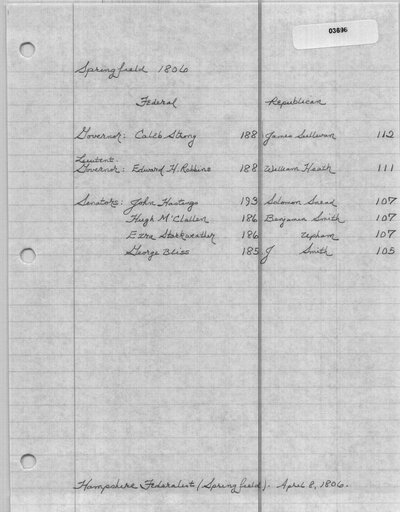 03696
Springfield 1806
Federal Republican
Governor: Caleb Strong 188 James Sullivan 112
Lieutent.
Governor: Edward H. Robbins 188 William Heath 111
Senators: John Hastings 193 Solomon 107
Hugh McClallen 186 Benjamin Smith 107
Ezra Starkweather 186 Upham 107
George Bliss 185 J Smith 105
Hampshire Federalist (Springfield). April 8, 1806.